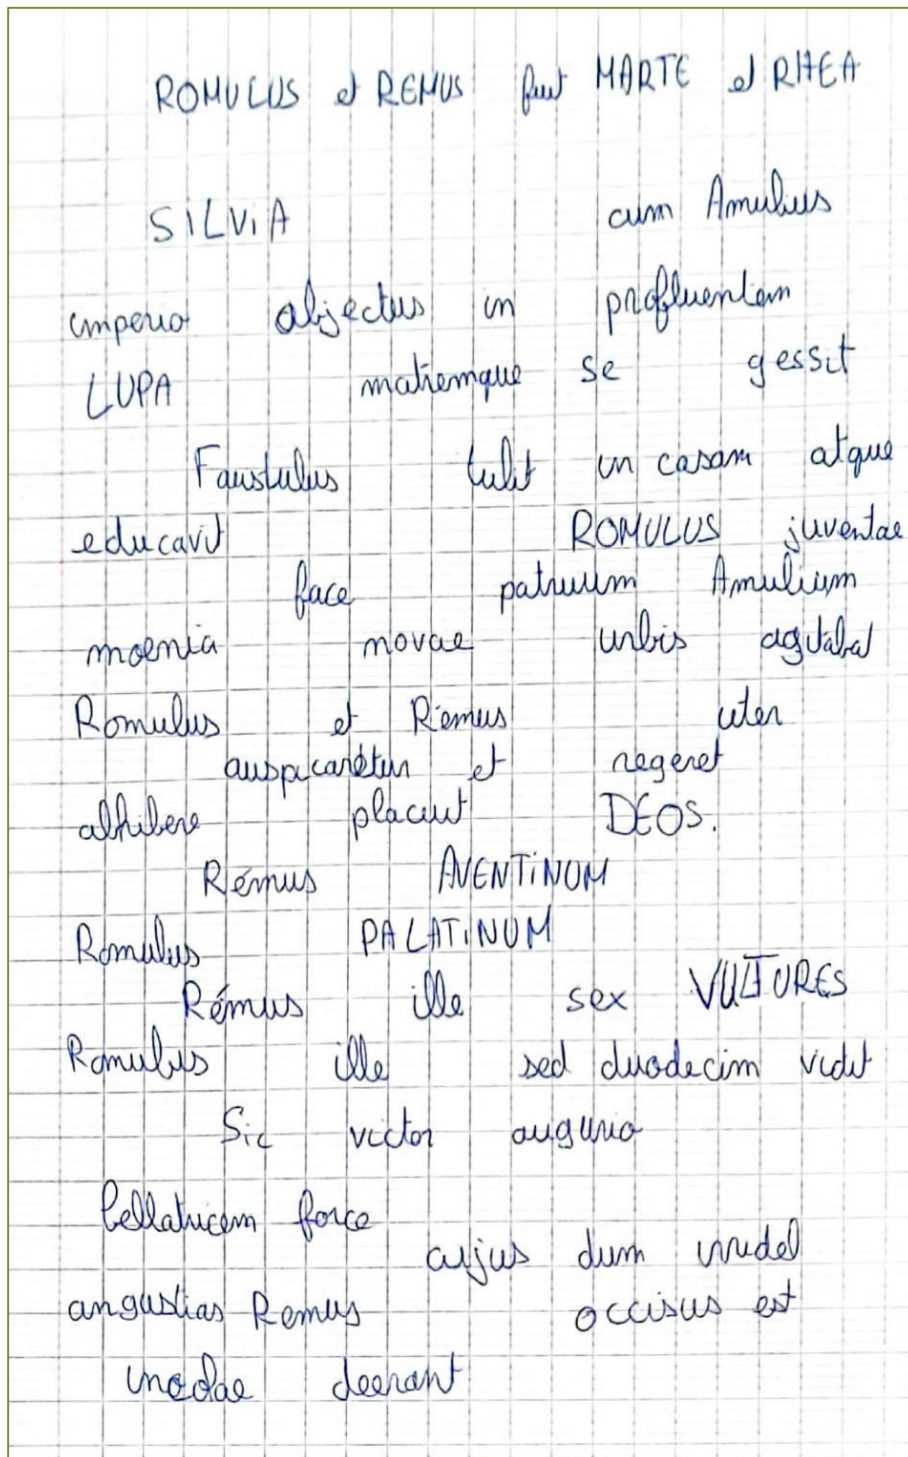 ROMULUS et REMUS fuit MARTE et RHEA
SILVIA cum Amulius
imperio abjectus in profluentem
LUPA matremque se gessit
Faustulus tulit in casam atque
educavit ROMULUS juventae
face patruum Amulium
moenia novae urbis agitabat
Romulus et Rémus uter
auspicarétur et regeret
adhibere placuit DEOS.
Rémus AVENTINUM
Romulus PALATINUM
Rémus ille sex VULTURES
Romulus ille sed duodecim vidit
Sic victor augurio
bellatricem force
cujus dum irridet
angustias Remus occisus est
incolae deerant